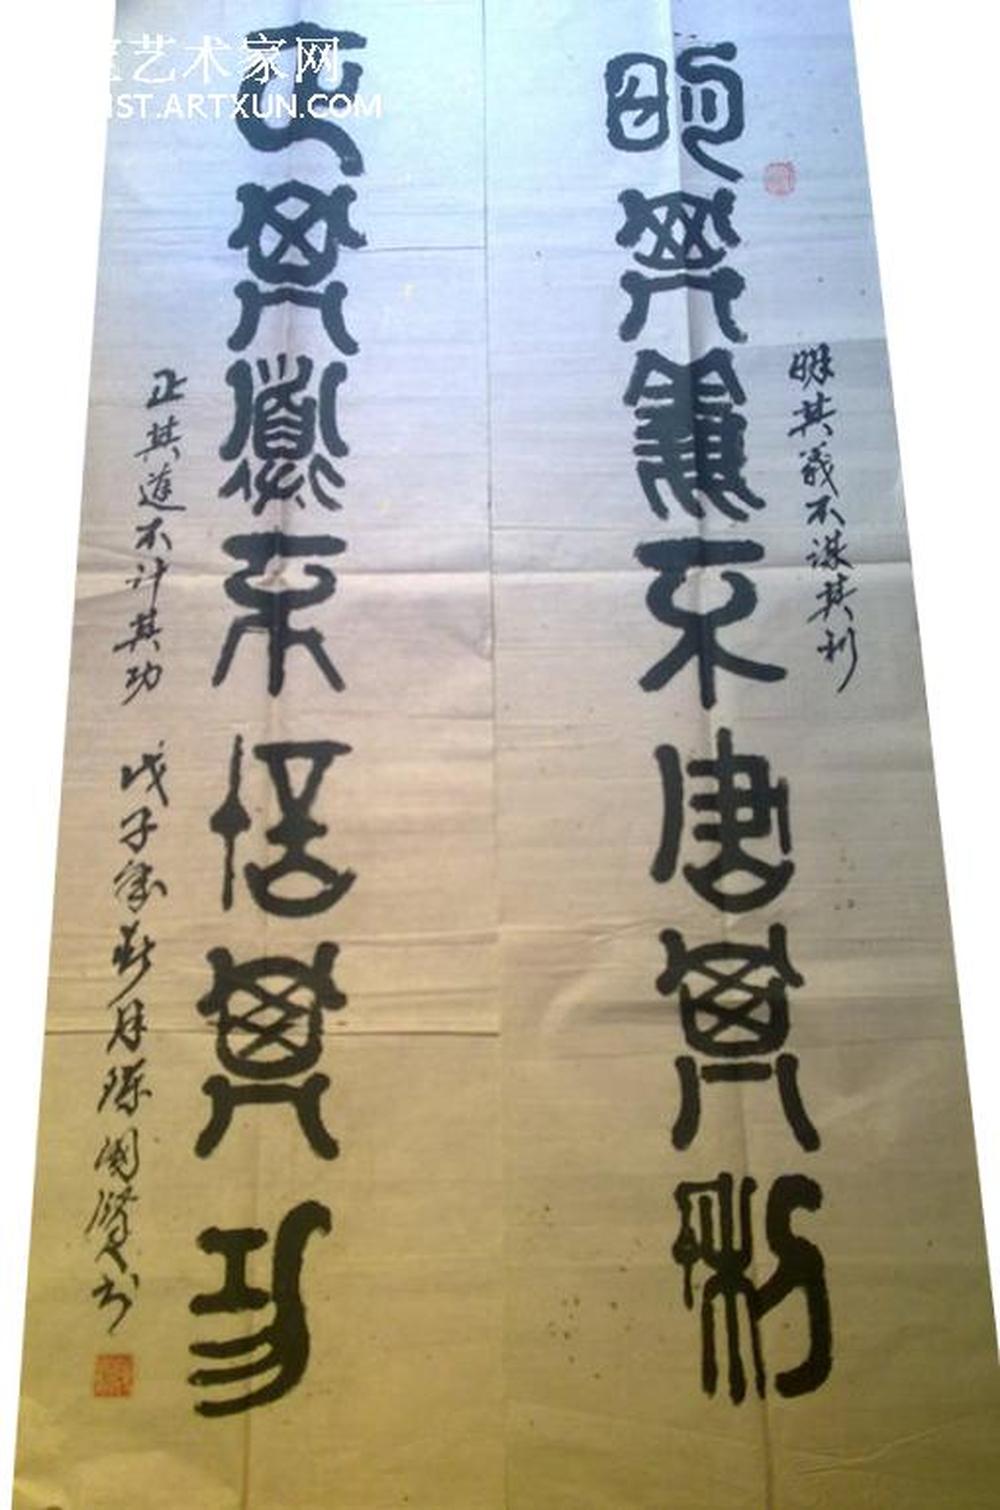 艺术家网
IST.ARTXUN.COM
明其義不謀其利
明其義不謀其利
正其道不計其功
正其道不计其功 戊子年 月陈国 书